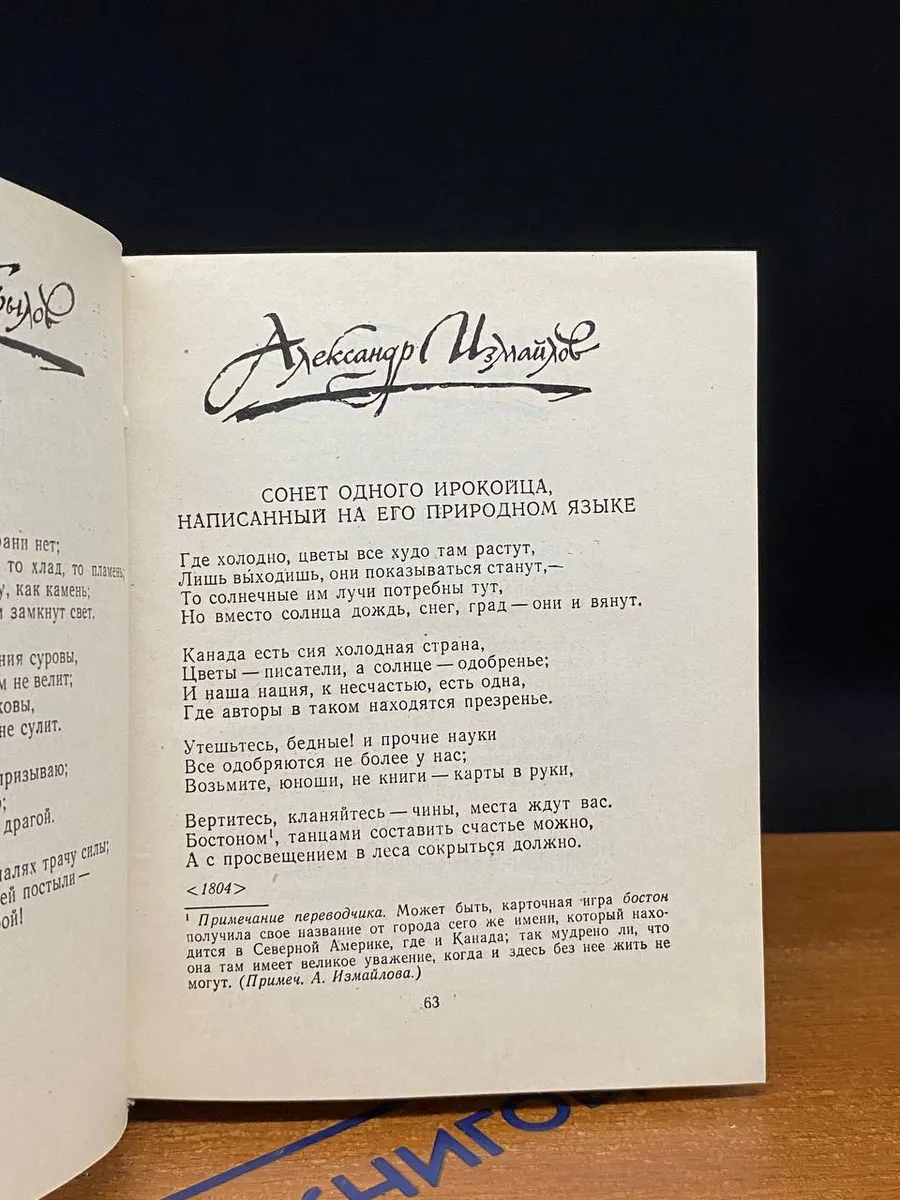 рани нет;
то хлад, то пламень,
у, как камень;
замкнут свет.
ния суровы,
м не велит;
ковы,
не сулит.
призываю;
драгой.
трачу силы;
ей постыли —
ой!
Александр Измайлов
СОНЕТ ОДНОГО ИРОКОЙЦА,
НАПИСАННЫЙ НА ЕГО ПРИРОДНОМ ЯЗЫКЕ
Где холодно, цветы все худо там растут,
Лишь вы́ходишь, они показываться станут,—
То солнечные им лучи потребны тут,
Но вместо солнца дождь, снег, град — они и вянут.
Канада есть сия холодная страна,
Цветы — писатели, а солнце — одобренье;
И наша нация, к несчастью, есть одна,
Где авторы в таком находятся презренье.
Утешьтесь, бедные! и прочие науки
Все одобряются не более у нас;
Возьмите, юноши, не книги — карты в руки,
Вертитесь, кланяйтесь — чины, места ждут вас.
Бостоном¹, танцами составить счастье можно,
А с просвещением в леса сокрыться должно.
<1804>
¹ Примечание переводчика. Может быть, карточная игра бостон
получила свое название от города сего же имени, который нахо-
дится в Северной Америке, где и Канада; так мудрено ли, что
она там имеет великое уважение, когда и здесь без нее жить не
могут. (Примеч. А. Измайлова.)
63
КНИГОВ